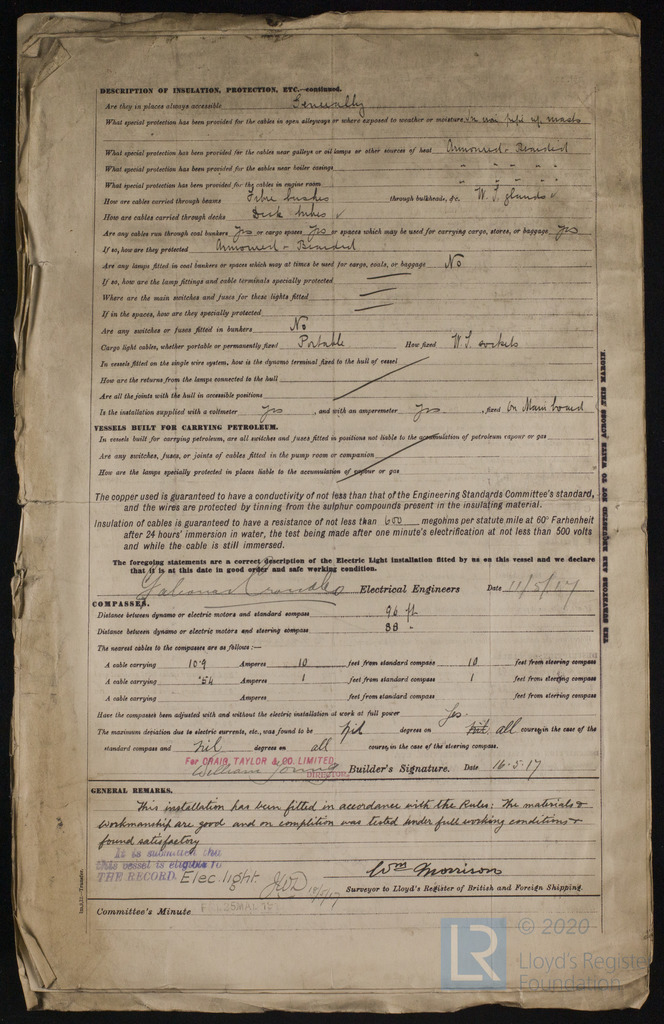 DESCRIPTION OF INSULATION, PROTECTION, ETC.—continued.
Are they in places always accessible Generally
What special protection has been provided for the cables in open alleyways or where exposed to weather or moisture, In iron pipes up masts
What special protection has been provided for the cables near galleys or oil lamps or other sources of heat Armoured & Braided
What special protection has been provided for the cables near boiler casings " " " "
What special protection has been provided for the cables in engine room " " " "
How are cables carried through beams Fibre bushes through bulkheads, &c. W.T. glands
How are cables carried through decks Deck tubes
Are any cables run through coal bunkers Yes or cargo spaces Yes or spaces which may be used for carrying cargo, stores, or baggage Yes
If so, how are they protected Armoured & Braided
Are any lamps fitted in coal bunkers or spaces which may at times be used for cargo, coals, or baggage No
If so, how are the lamp fittings and cable terminals specially protected
Where are the main switches and fuses for these lights fitted
If in the spaces, how are they specially protected
Are any switches or fuses fitted in bunkers No
Cargo light cables, whether portable or permanently fixed Portable How fixed W.T. sockets
In vessels fitted on the single wire system, how is the dynamo terminal fixed to the hull of vessel
How are the returns from the lamps connected to the hull
Are all the joints with the hull in accessible positions
Is the installation supplied with a voltmeter Yes, and with an amperemeter Yes, fixed On Main board
VESSELS BUILT FOR CARRYING PETROLEUM.
In vessels built for carrying petroleum, are all switches and fuses fitted in positions not liable to the accumulation of petroleum vapour or gas
Are any switches, fuses, or joints of cables fitted in the pump room or companion
How are the lamps specially protected in places liable to the accumulation of vapour or gas
The copper used is guaranteed to have a conductivity of not less than that of the Engineering Standards Committee's standard,
and the wires are protected by tinning from the sulphur compounds present in the insulating material.
Insulation of cables is guaranteed to have a resistance of not less than 600 megohms per statute mile at 60° Farhenheit
after 24 hours' immersion in water, the test being made after one minute's electrification at not less than 500 volts
and while the cable is still immersed.
The foregoing statements are a correct description of the Electric Light Installation fitted by us on this vessel and we declare
that it is at this date in good order and safe working condition.
Electrical Engineers Date 11/5/17
COMPASSES.
Distance between dynamo or electric motors and standard compass 96 ft
Distance between dynamo or electric motors and steering compass 88 "
The nearest cables to the compasses are as follows:—
A cable carrying 10.9 Amperes 10 feet from standard compass 10 feet from steering compass
A cable carrying .54 Amperes 1 feet from standard compass 1 feet from steering compass
A cable carrying Amperes feet from standard compass feet from steering compass
Have the compasses been adjusted with and without the electric installation at work at full power Yes.
The maximum deviation due to electric currents, etc., was found to be Nil degrees on Nil all course, in the case of the
standard compass and Nil degrees on all course, in the case of the steering compass.
For CRAIG, TAYLOR & CO. LIMITED
William Young DIRECTOR. Builder's Signature. Date 16.5.17
GENERAL REMARKS.
This installation has been fitted in accordance with the Rules: The materials &
workmanship are good and on completion was tested under full working conditions &
found satisfactory
It is submitted that
this vessel is eligible to
THE RECORD. Elec. light
Wm Morrison
Surveyor to Lloyd's Register of British and Foreign Shipping.
Committee's Minute
THE SURVEYORS ARE REQUESTED NOT TO WRITE ACROSS THIS MARGIN.
LR © 2020
Lloyd's Register
Foundation